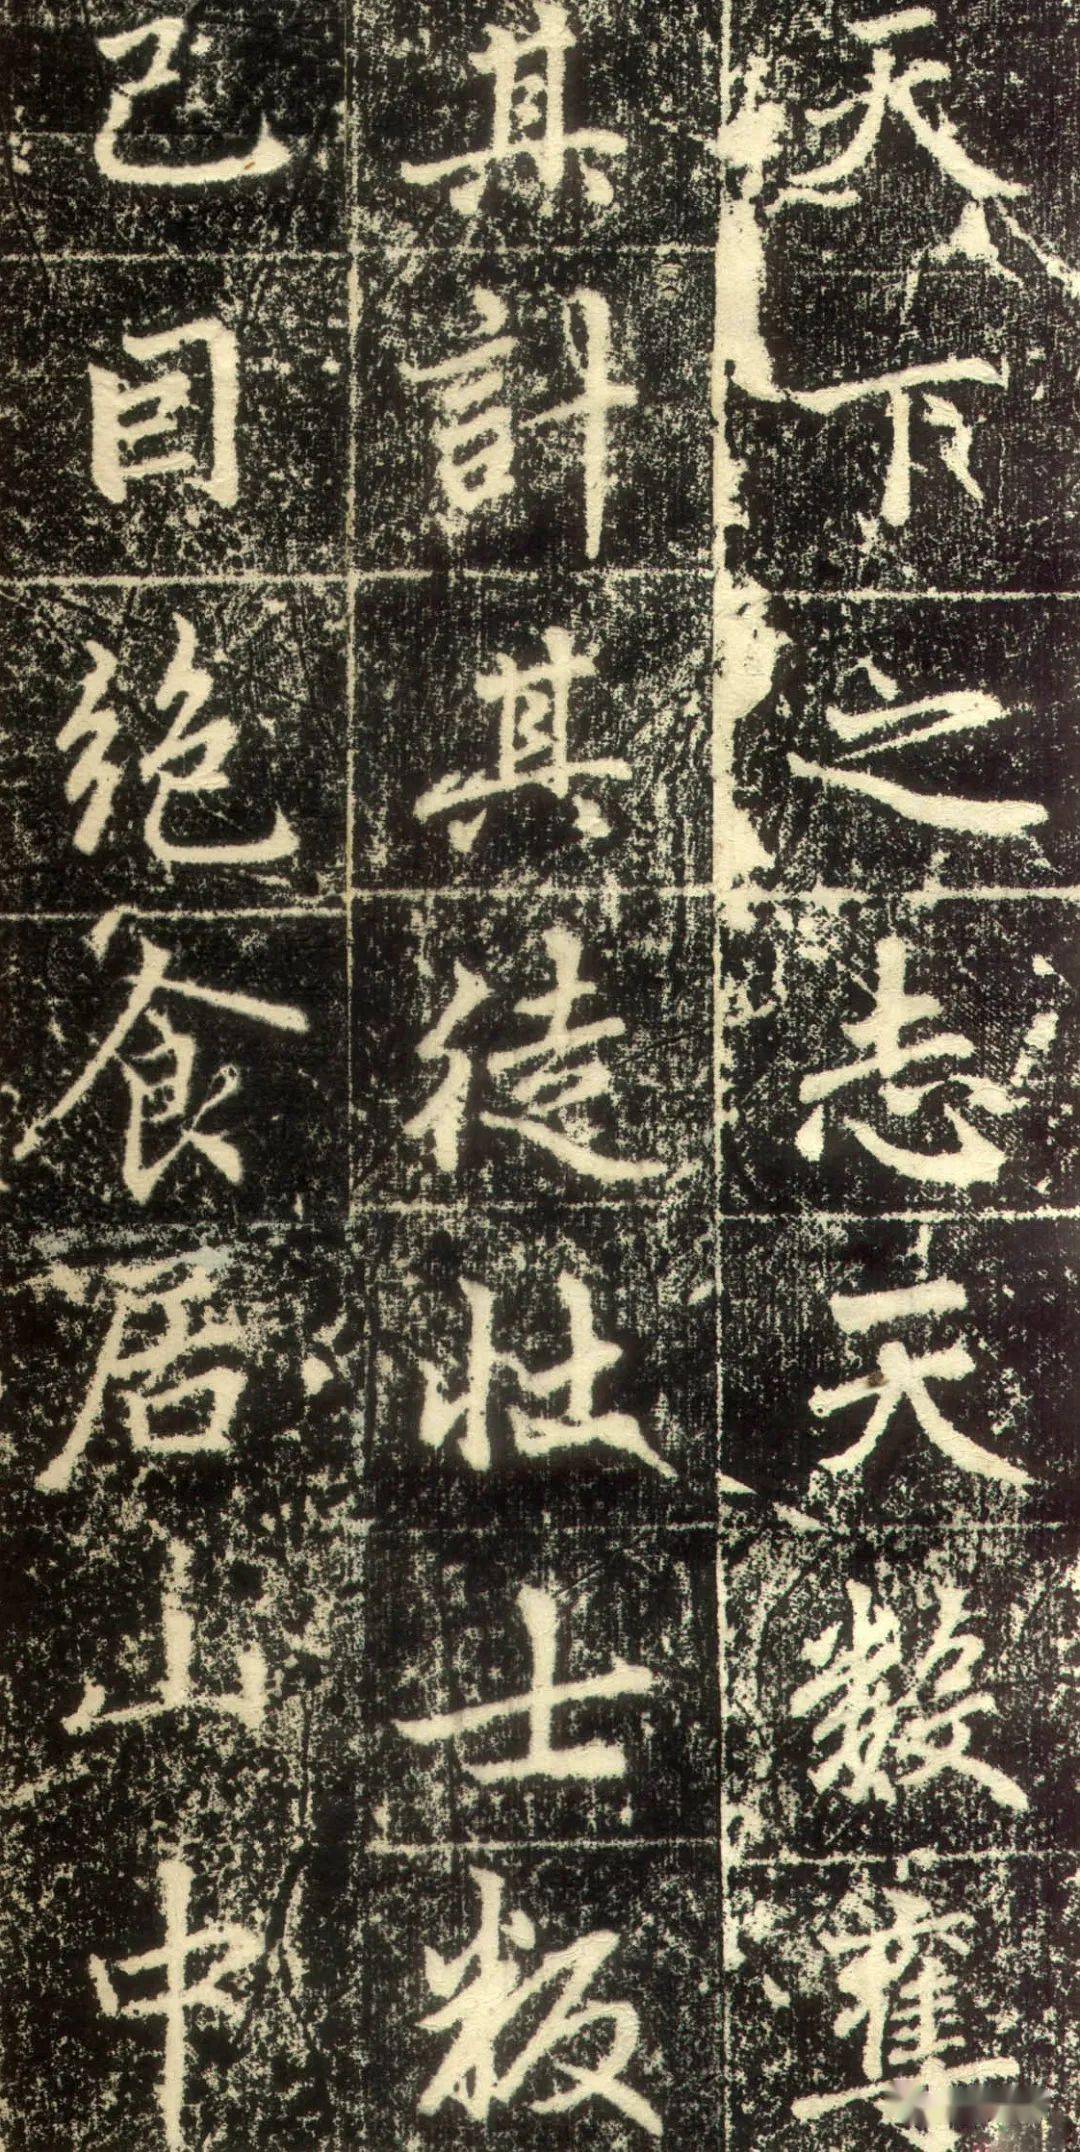 天下之志天數奪
其計其徒壯士板
己因絶食居山中